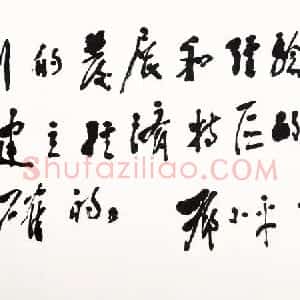 圳的发展和经验
建立经济特区的
Shufaziliao.com
确的。 邓小平